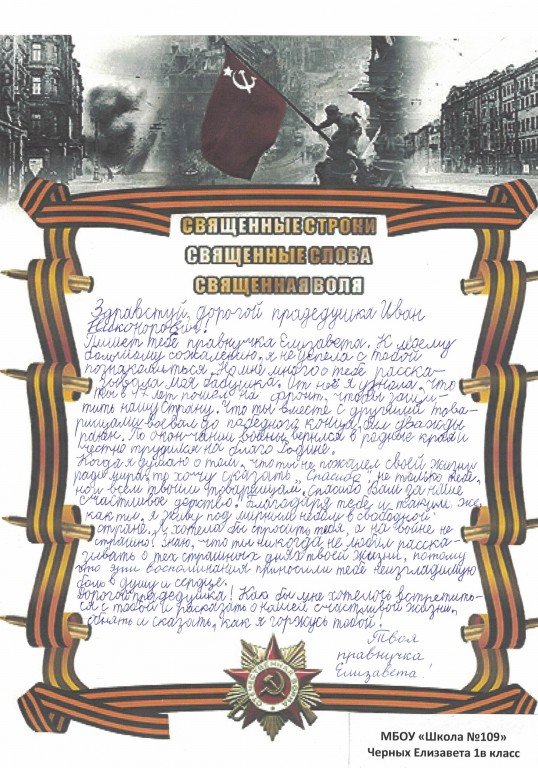 СВЯЩЕННЫЕ СТРОКИ
СВЯЩЕННЫЕ СЛОВА
СВЯЩЕННАЯ ВОЛЯ
Здравствуй, дорогой прадедушка Иван
Никонорович!
Пишет тебе правнучка Елизавета. К моему
большому сожалению, я не успела с тобой
познакомиться. Но мне много о тебе расска-
зывала моя бабушка. От неё я узнала, что
ты в 17 лет пошёл на фронт, чтобы защи-
тить нашу Страну. Что ты вместе с другими това-
рищами воевал до победного конца, был дважды
ранен. По окончании войны вернулся в родные края и
честно трудился на благо Родине.
Когда я думаю о том, что ты не пожалел своей жизни
ради мира, то хочу сказать "Спасибо" не только тебе,
но и всем твоим товарищам. Спасибо Вам за наше
счастливое детство. Благодаря тебе и таким же,
как ты, я живу под мирным небом в свободной
стране. Я хотела бы спросить тебя, а на войне не
страшно? Знаю, что ты никогда не любил расска-
зывать о тех страшных днях твоей жизни, потому
что эти воспоминания приносили тебе неизгладимую
боль в душу и сердце.
Дорогой прадедушка! Как бы мне хотелось встретить-
ся с тобой и рассказать о нашей счастливой жизни,
обнять и сказать, как я горжусь тобой!
Твоя
правнучка
Елизавета!
ОТЕЧЕСТВЕННАЯ ВОЙНА
МБОУ «Школа №109»
Черных Елизавета 1в класс